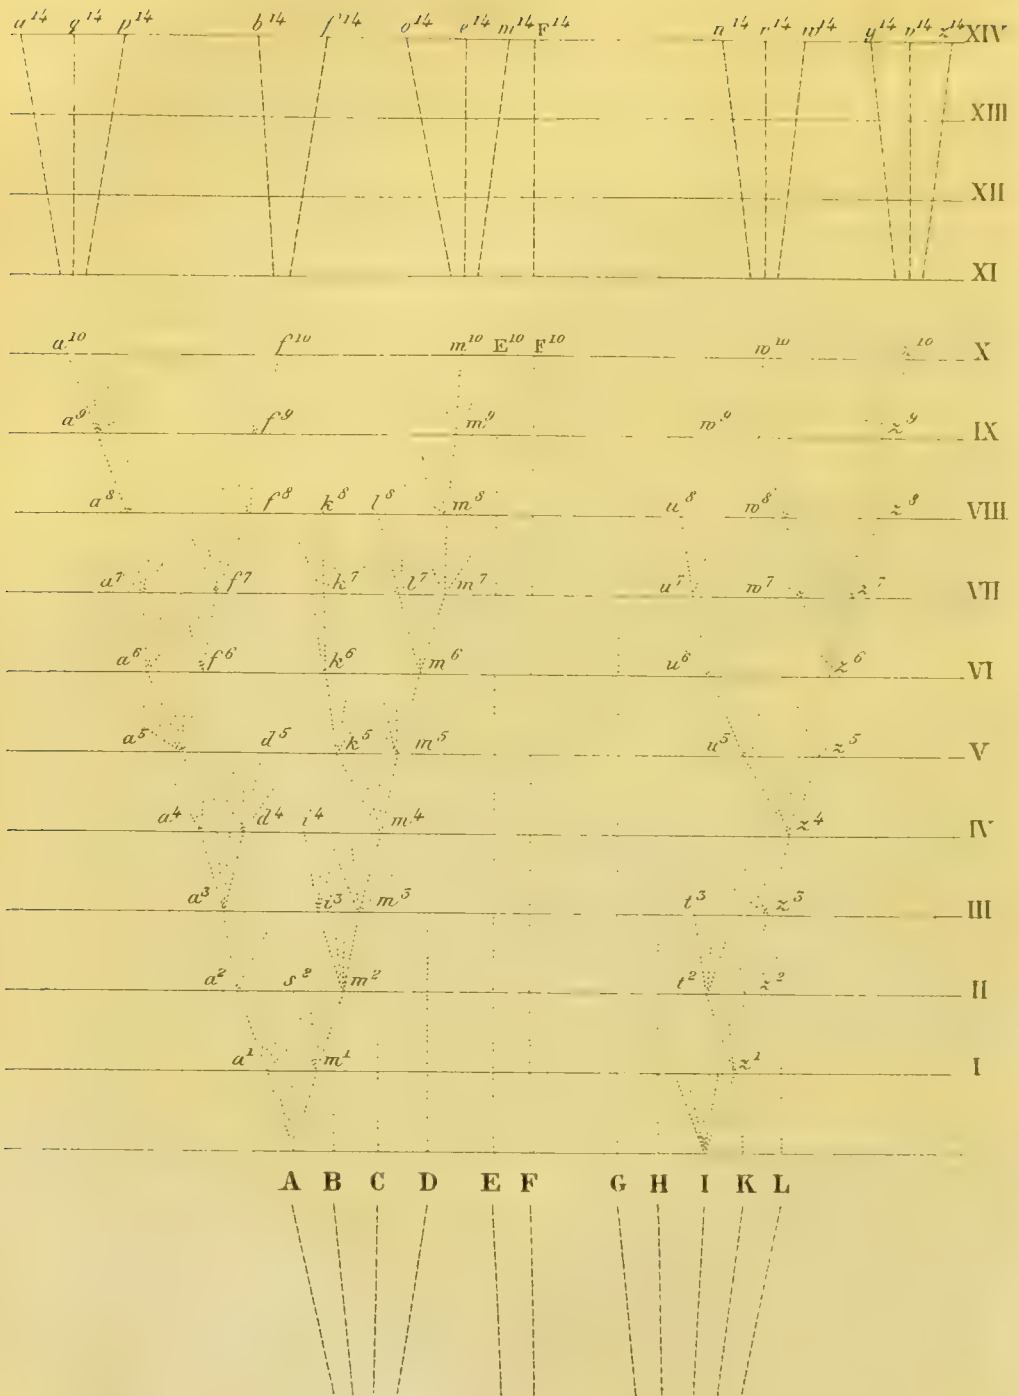 a14 q14 p14 b14 f14 o14 e14 m14 F14 n14 r14 w14 y14 v14 z14 XIV
XIII
XII
XI
a10 f10 m10 E10 F10 w10 z10 X
a9 f9 m9 w9 z9 IX
a8 f8 k8 l8 m8 u8 w8 z8 VIII
a7 f7 k7 l7 m7 u7 w7 z7 VII
a6 f6 k6 m6 u6 z6 VI
a5 d5 k5 m5 u5 z5 V
a4 d4 i4 m4 z4 IV
a3 i3 m3 t3 z3 III
a2 s2 m2 t2 z2 II
a1 m1 z1 I
A B C D E F G H I K L